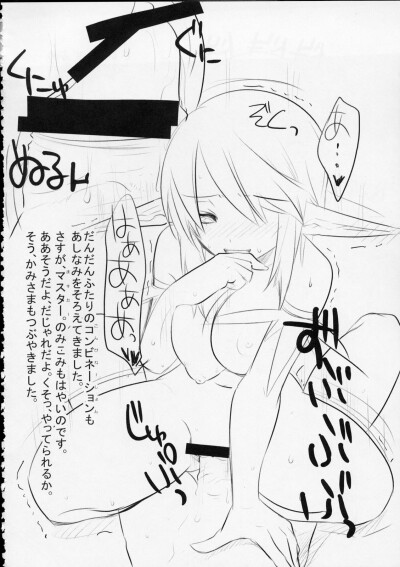 あ…♥
ぞくっ
くにゅ
ぬるん
だんだんふたりのコンビネーションも
あしなみをそろえてきました。
さすが、マスター。のみこみもはやいのです。
ああそうだよ、だじゃれだよ。くそっ、やってられるか。
そう、かみさまもつぶやきました。